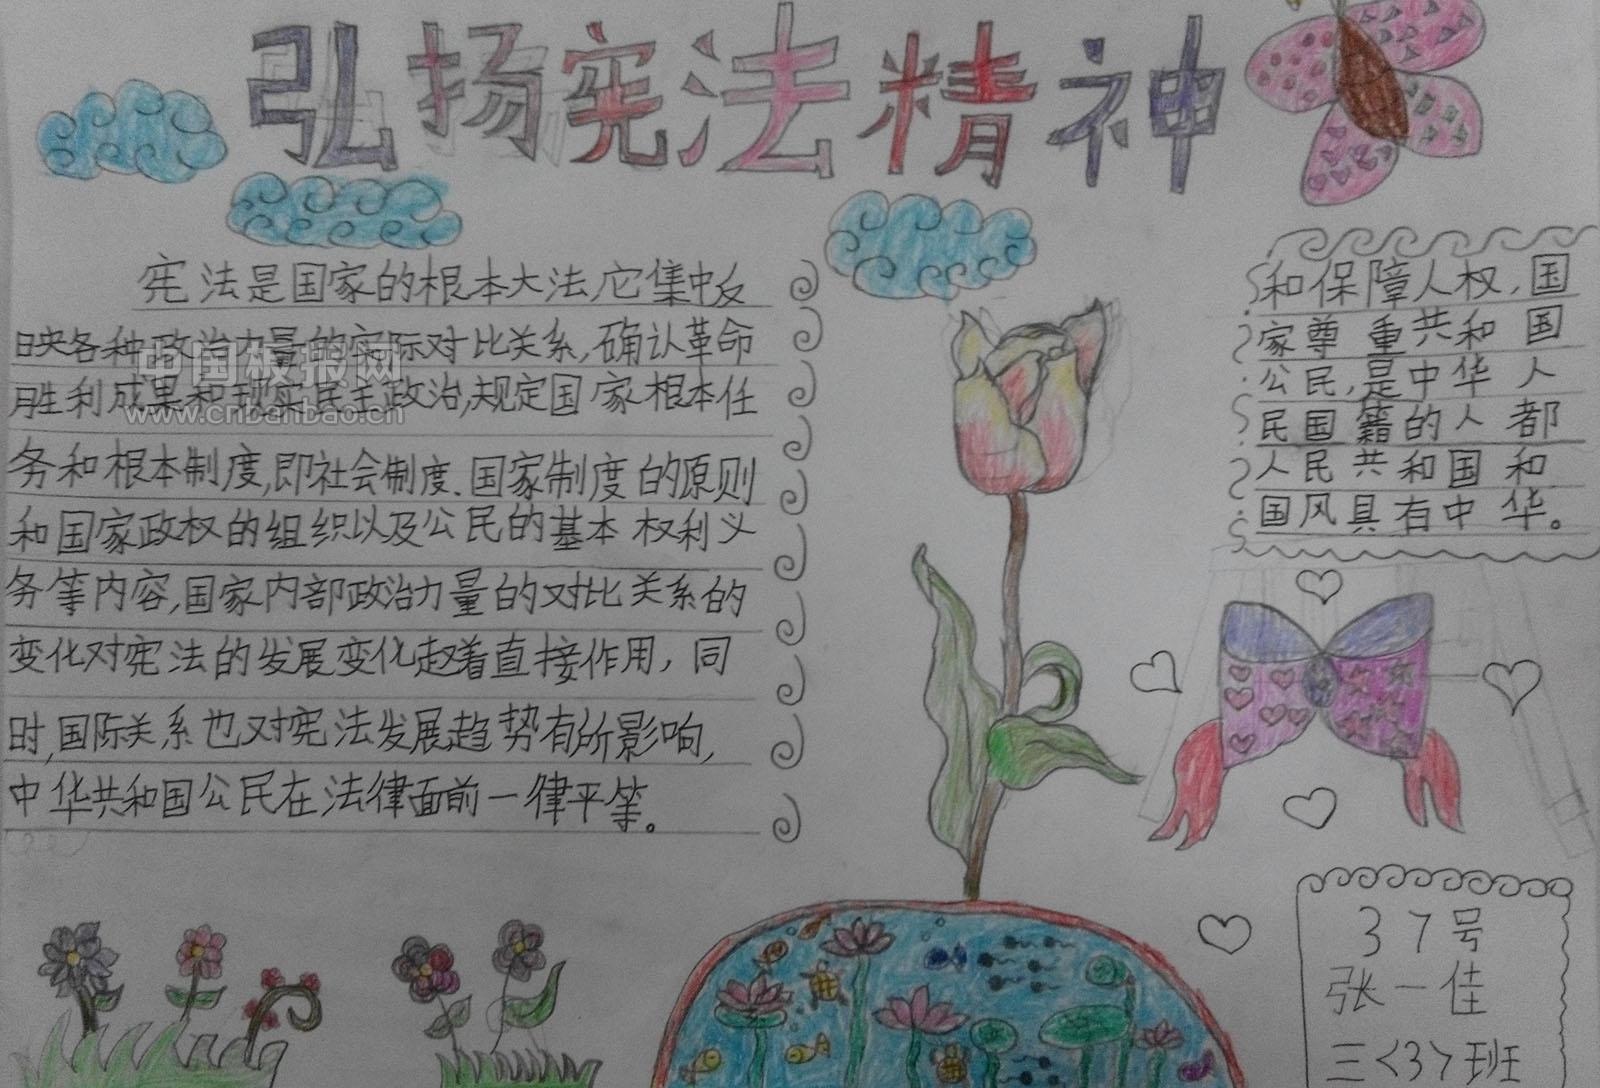 弘扬宪法精神
宪法是国家的根本大法,它集中反
映各种政治力量的实际对比关系,确认革命
胜利成果和现实民主政治,规定国家根本任
务和根本制度,即社会制度、国家制度的原则
和国家政权的组织以及公民的基本权利义
务等内容,国家内部政治力量的对比关系的
变化对宪法的发展变化起着直接作用,同
时,国际关系也对宪法发展趋势有所影响,
中华共和国公民在法律面前一律平等。
和保障人权,国
家尊重共和国
公民,是中华人
民国籍的人都
人民共和国和
国风具有中华。
37号
张一佳
三<3>班
中国板报网
www.cnbanbao.cn